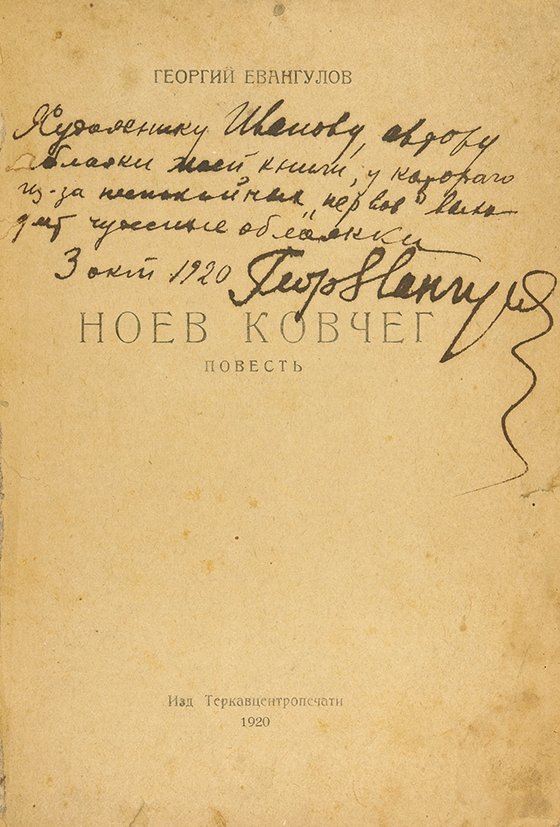 ГЕОРГИЙ ЕВАНГУЛОВ
Художнику Иванову, автору
обложки моей книги, у котораго
из-за неспокойных „нервов" выхо-
дят чудные обложки
3 окт 1920 Георг Евангулов
НОЕВ КОВЧЕГ
ПОВЕСТЬ
Изд Теркавцентропечати
1920